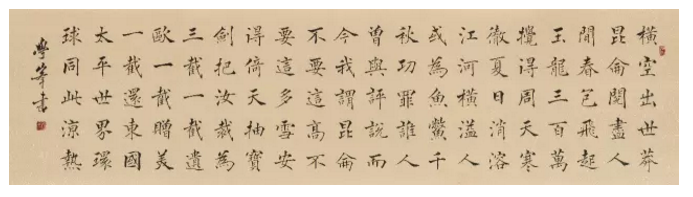 橫空出世莽
昆侖閱盡人
間春色飛起
玉龍三百萬
攪得周天寒
徹夏日消溶
江河橫溢人
或為魚鱉千
秋功罪誰人
曾與評說而
今我謂昆侖
不要這高不
要這多雪安
得倚天抽寶
劍把汝裁為
三截一截遺
歐一截贈美
一截還東國
太平世界環
球同此涼熱
學書